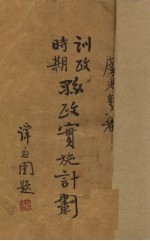 廖 著
訓政
時期
縣政實施計劃
譚延闓題